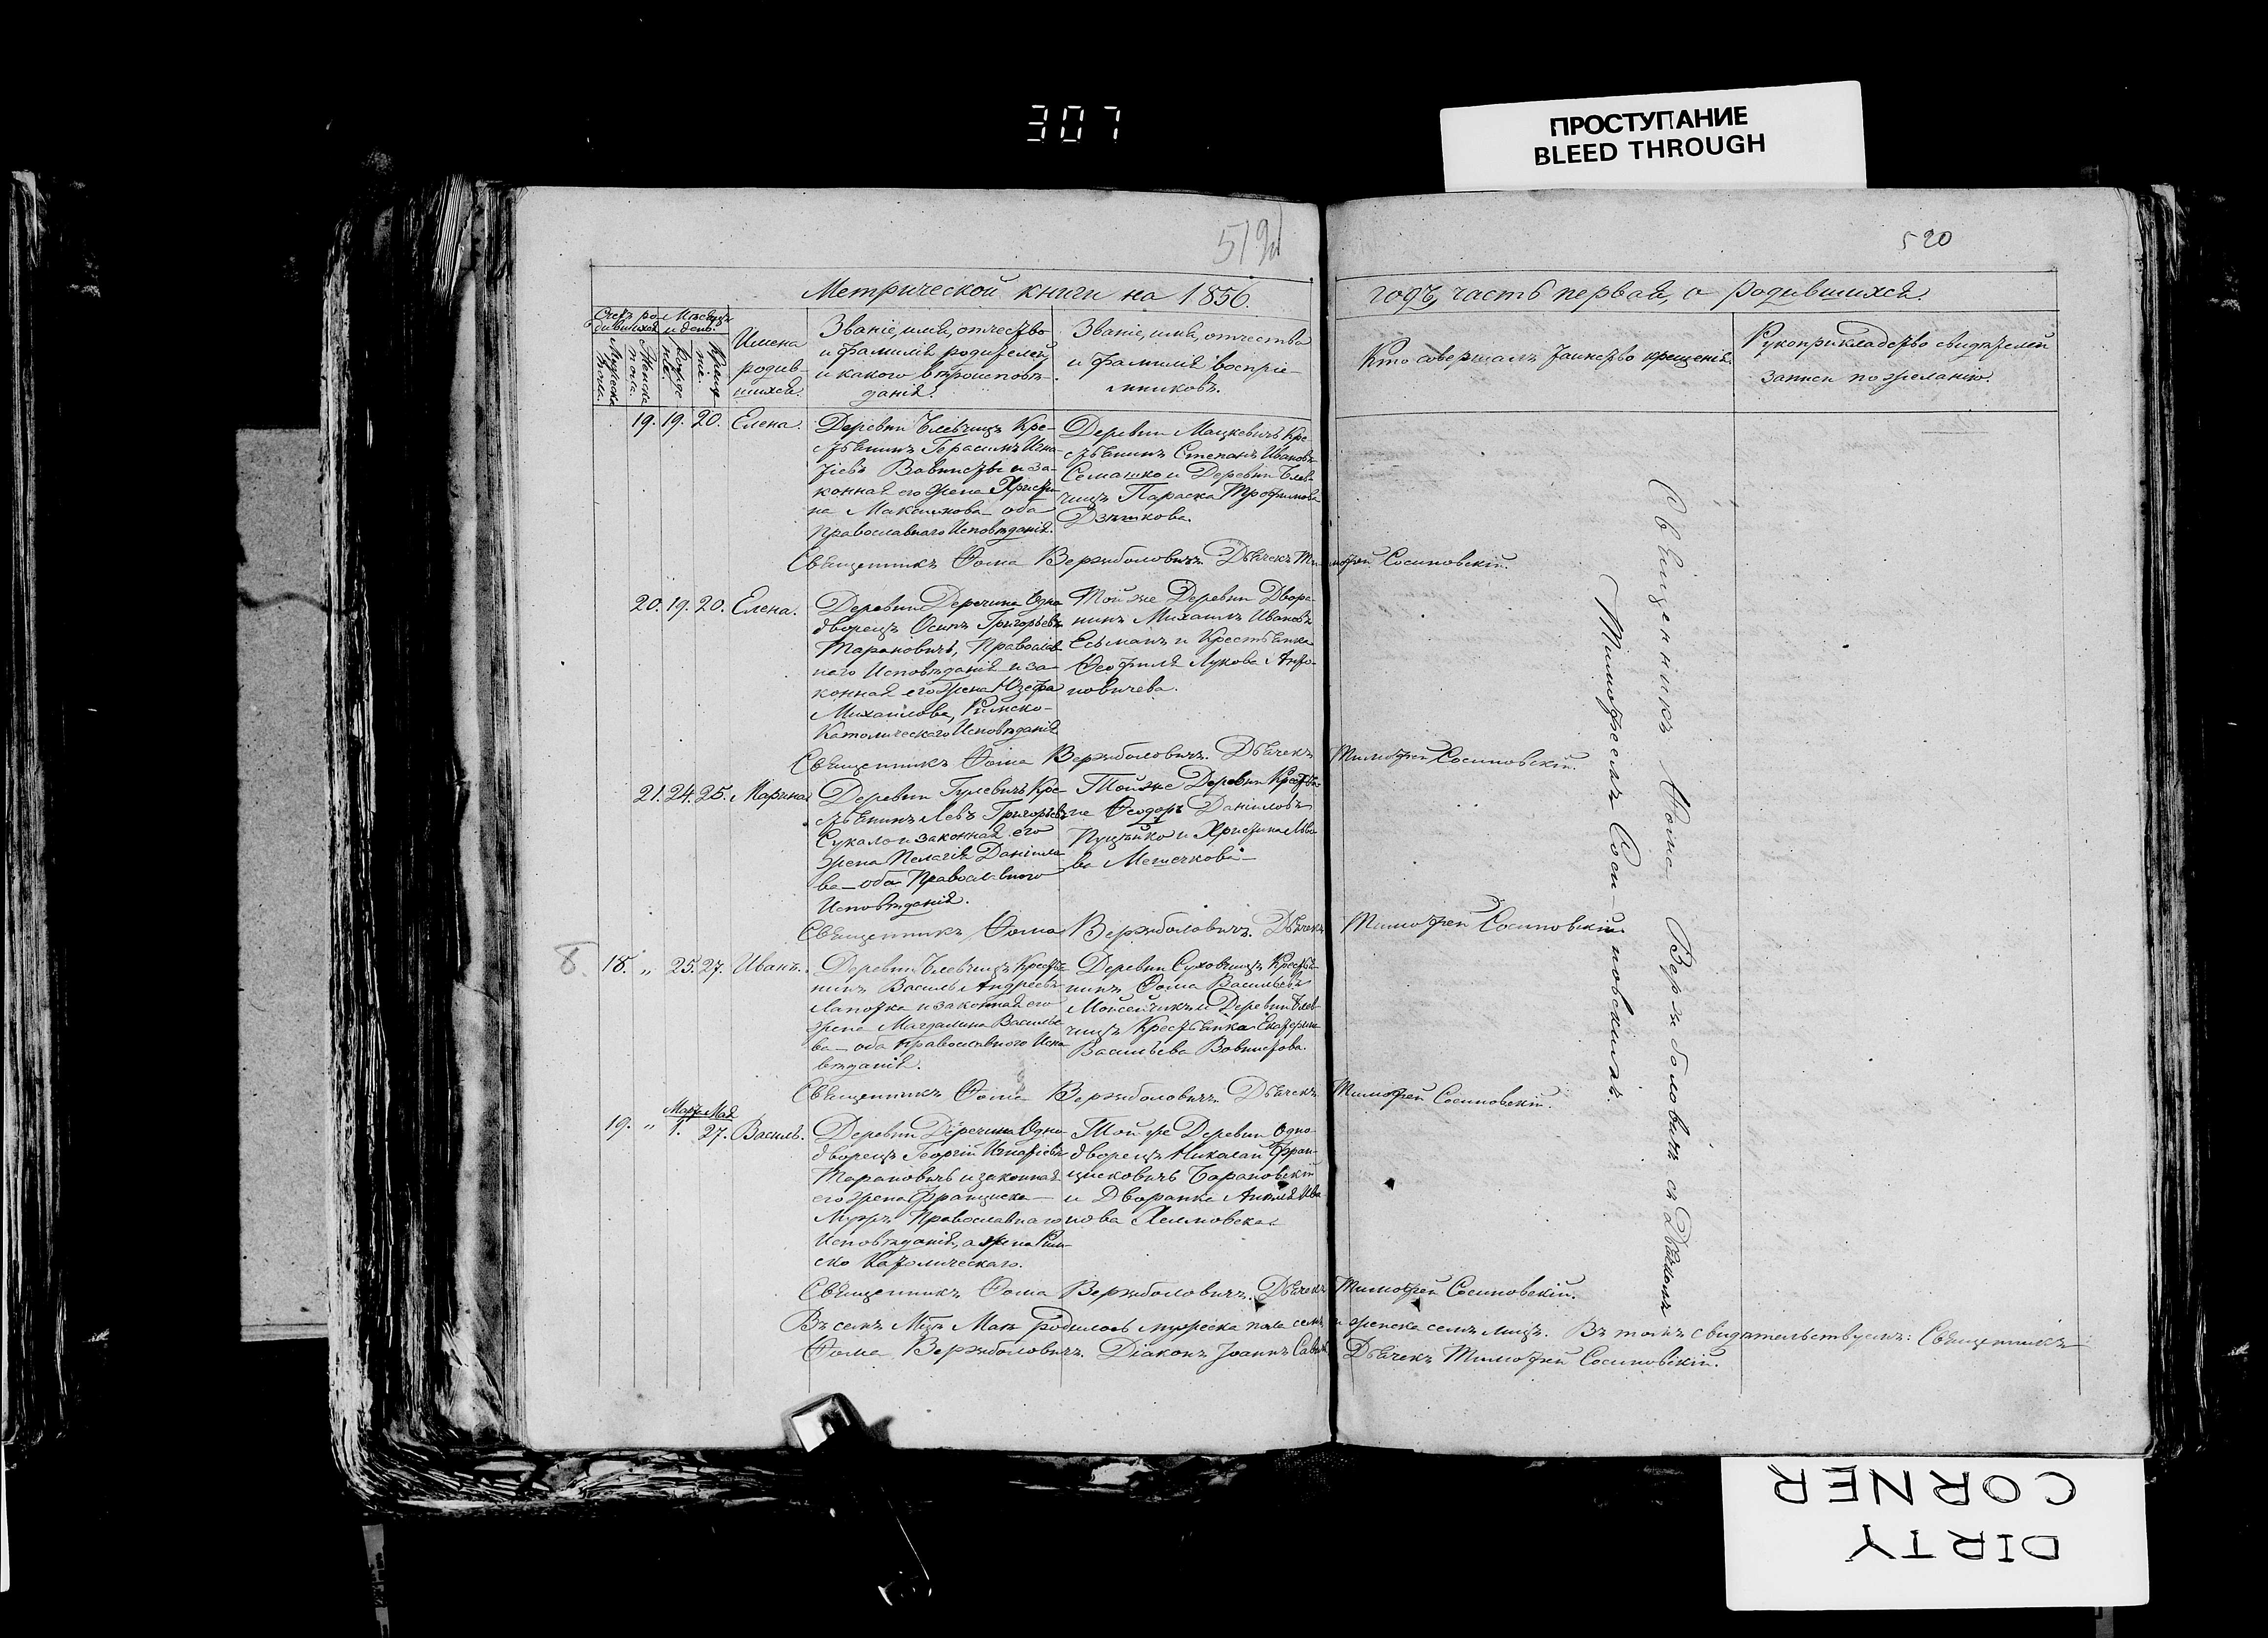 307
ПРОСТУПАНИЕ
BLEED THROUGH
519
520
Метрической книги на 1856.
годъ, часть первая, о родившихся.
Счетъ ро-
дившихся
Мѣсяцъ
и день.
Мужеска
пола.
Женска
пола.
Рожде
ніе.
Крещ
ніе.
Имена
родив-
шихся.
Званіе, имя, отчество
и фамилія родителей,
и какого вѣроисповѣ-
данія.
Званіе, имя, отчество
и фамилія воспріе-
мниковъ.
Кто совершалъ таинство крещенія.
Рукоприкладство свидѣтелей
записи по желанію.
19. 19. 20. Елена.
Деревни Блевчицъ Кре-
стьянинъ Герасимъ Игна
тіевъ и за-
конная его жена Христи
на Максимова оба
православнаго Исповѣданія.
Деревни Мацкевичъ Кре
стьянинъ Степанъ Ивановъ
Семашко и Деревни Блев
чицъ Параска Трофимова
Священникъ Ѳома Вержболовичъ. Дьячекъ Тимофей Сосиновскій.
20. 19. 20. Елена.
Деревни Деречина Одно
дворецъ Осипъ Григорьевъ
Тарановичъ, Православ
наго Исповѣданія и за-
конная его жена Юзефа
Михайлова, Римско-
Католическаго Исповѣданія
Той же Деревни Дворя
нинъ Михаилъ Ивановъ
Есьманъ и Крестьянка
Ѳеофиля Лукова Анто-
новичева.
Священникъ Ѳома Вержболовичъ. Дьячекъ Тимофей Сосиновскій.
21. 24. 25. Марина
Деревни Гулевичъ Кре-
стьянинъ Левъ Григорьевъ
Сукало и законная его
жена Пелагія Даніило
ва — оба Православного
Исповѣданія.
Той же Деревни Крестья
не Ѳеодоръ Даніиловъ
и Христина Льво
ва
Священникъ Ѳома Вержболовичъ. Дьячекъ Тимофей Сосиновскій.
8.
18. „ 25. 27. Иванъ.
Деревни Блевчицъ Крестья
нинъ Василь Андреевъ
Лапотка и законная его
жена Магдалина Василье
ва — оба православного Испо
вѣданія.
Деревни Суховчицъ Крестья
нинъ Ѳома Васильевъ
Моисейчикъ и Деревни Блев
чицъ Крестьянка Екатерина
Васильева
Священникъ Ѳома Вержболовичъ. Дьячекъ Тимофей Сосиновскій.
Март. Мая
19. „ 1. 27. Василь.
Деревни Деречина Одно
дворецъ Георгій Игнатіевъ
Тарановичъ и законная
его жена Франциска —
Мужъ Православнаго
Исповѣданія, а жена Рим-
ско Католическаго.
Той же Деревни Одно
дворецъ Николай Фран
цисковичъ Барановскій
и Дворянка Анеля Ива
нова
Священникъ Ѳома Вержболовичъ. Дьячекъ Тимофей Сосиновскій.
Въ семъ Мцѣ Маѣ родилось мужеска пола семь, и женска семь лицъ. Въ томъ свидѣтельствуемъ: Священникъ
Ѳома Вержболовичъ. Діаконъ Іоаннъ Дьячекъ Тимофей Сосиновскій.
Священникъ Ѳома Вержболовичъ съ Дьячкомъ
Тимофеемъ Соси-новскимъ.
DIRTY
CORNER